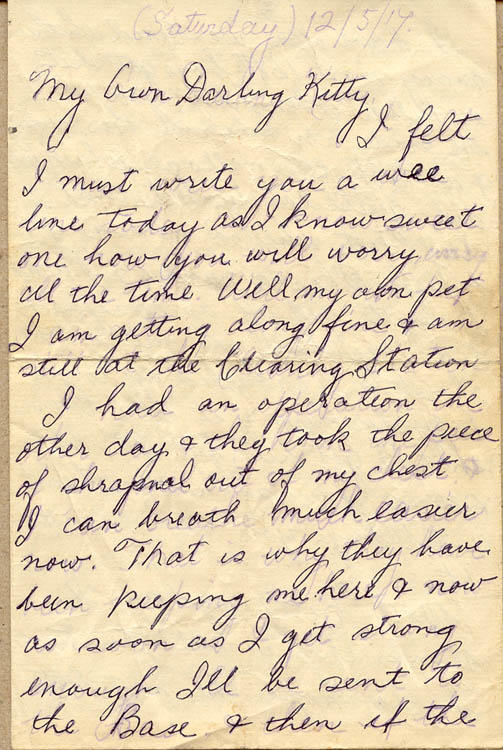 (Saturday) 12/5/17.
My Own Darling Kitty
I felt
I must write you a wee
line today as I know sweet
one how you will worry
all the time. Well my own pet
I am getting along fine & am
still at the Clearing Station
I had an operation the
other day & they took the piece
of shrapnal out of my chest
I can breath much easier
now. That is why they have
been keeping me here & now
as soon as I get strong
enough Ill be sent to
the Base & then if the